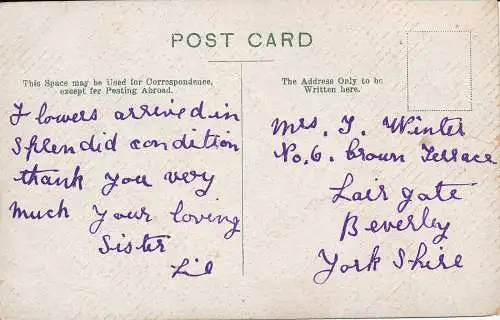 POST CARD
This Space may be Used for Correspondence,
except for Posting Abroad.
The Address Only to be
Written here.
Flowers arrived in
Splendid condition
thank you very
much your loving
Sister
Lil
Mrs. J. Winter
No. 6. Crown Terrace
Lairgate
Beverley
Yorkshire